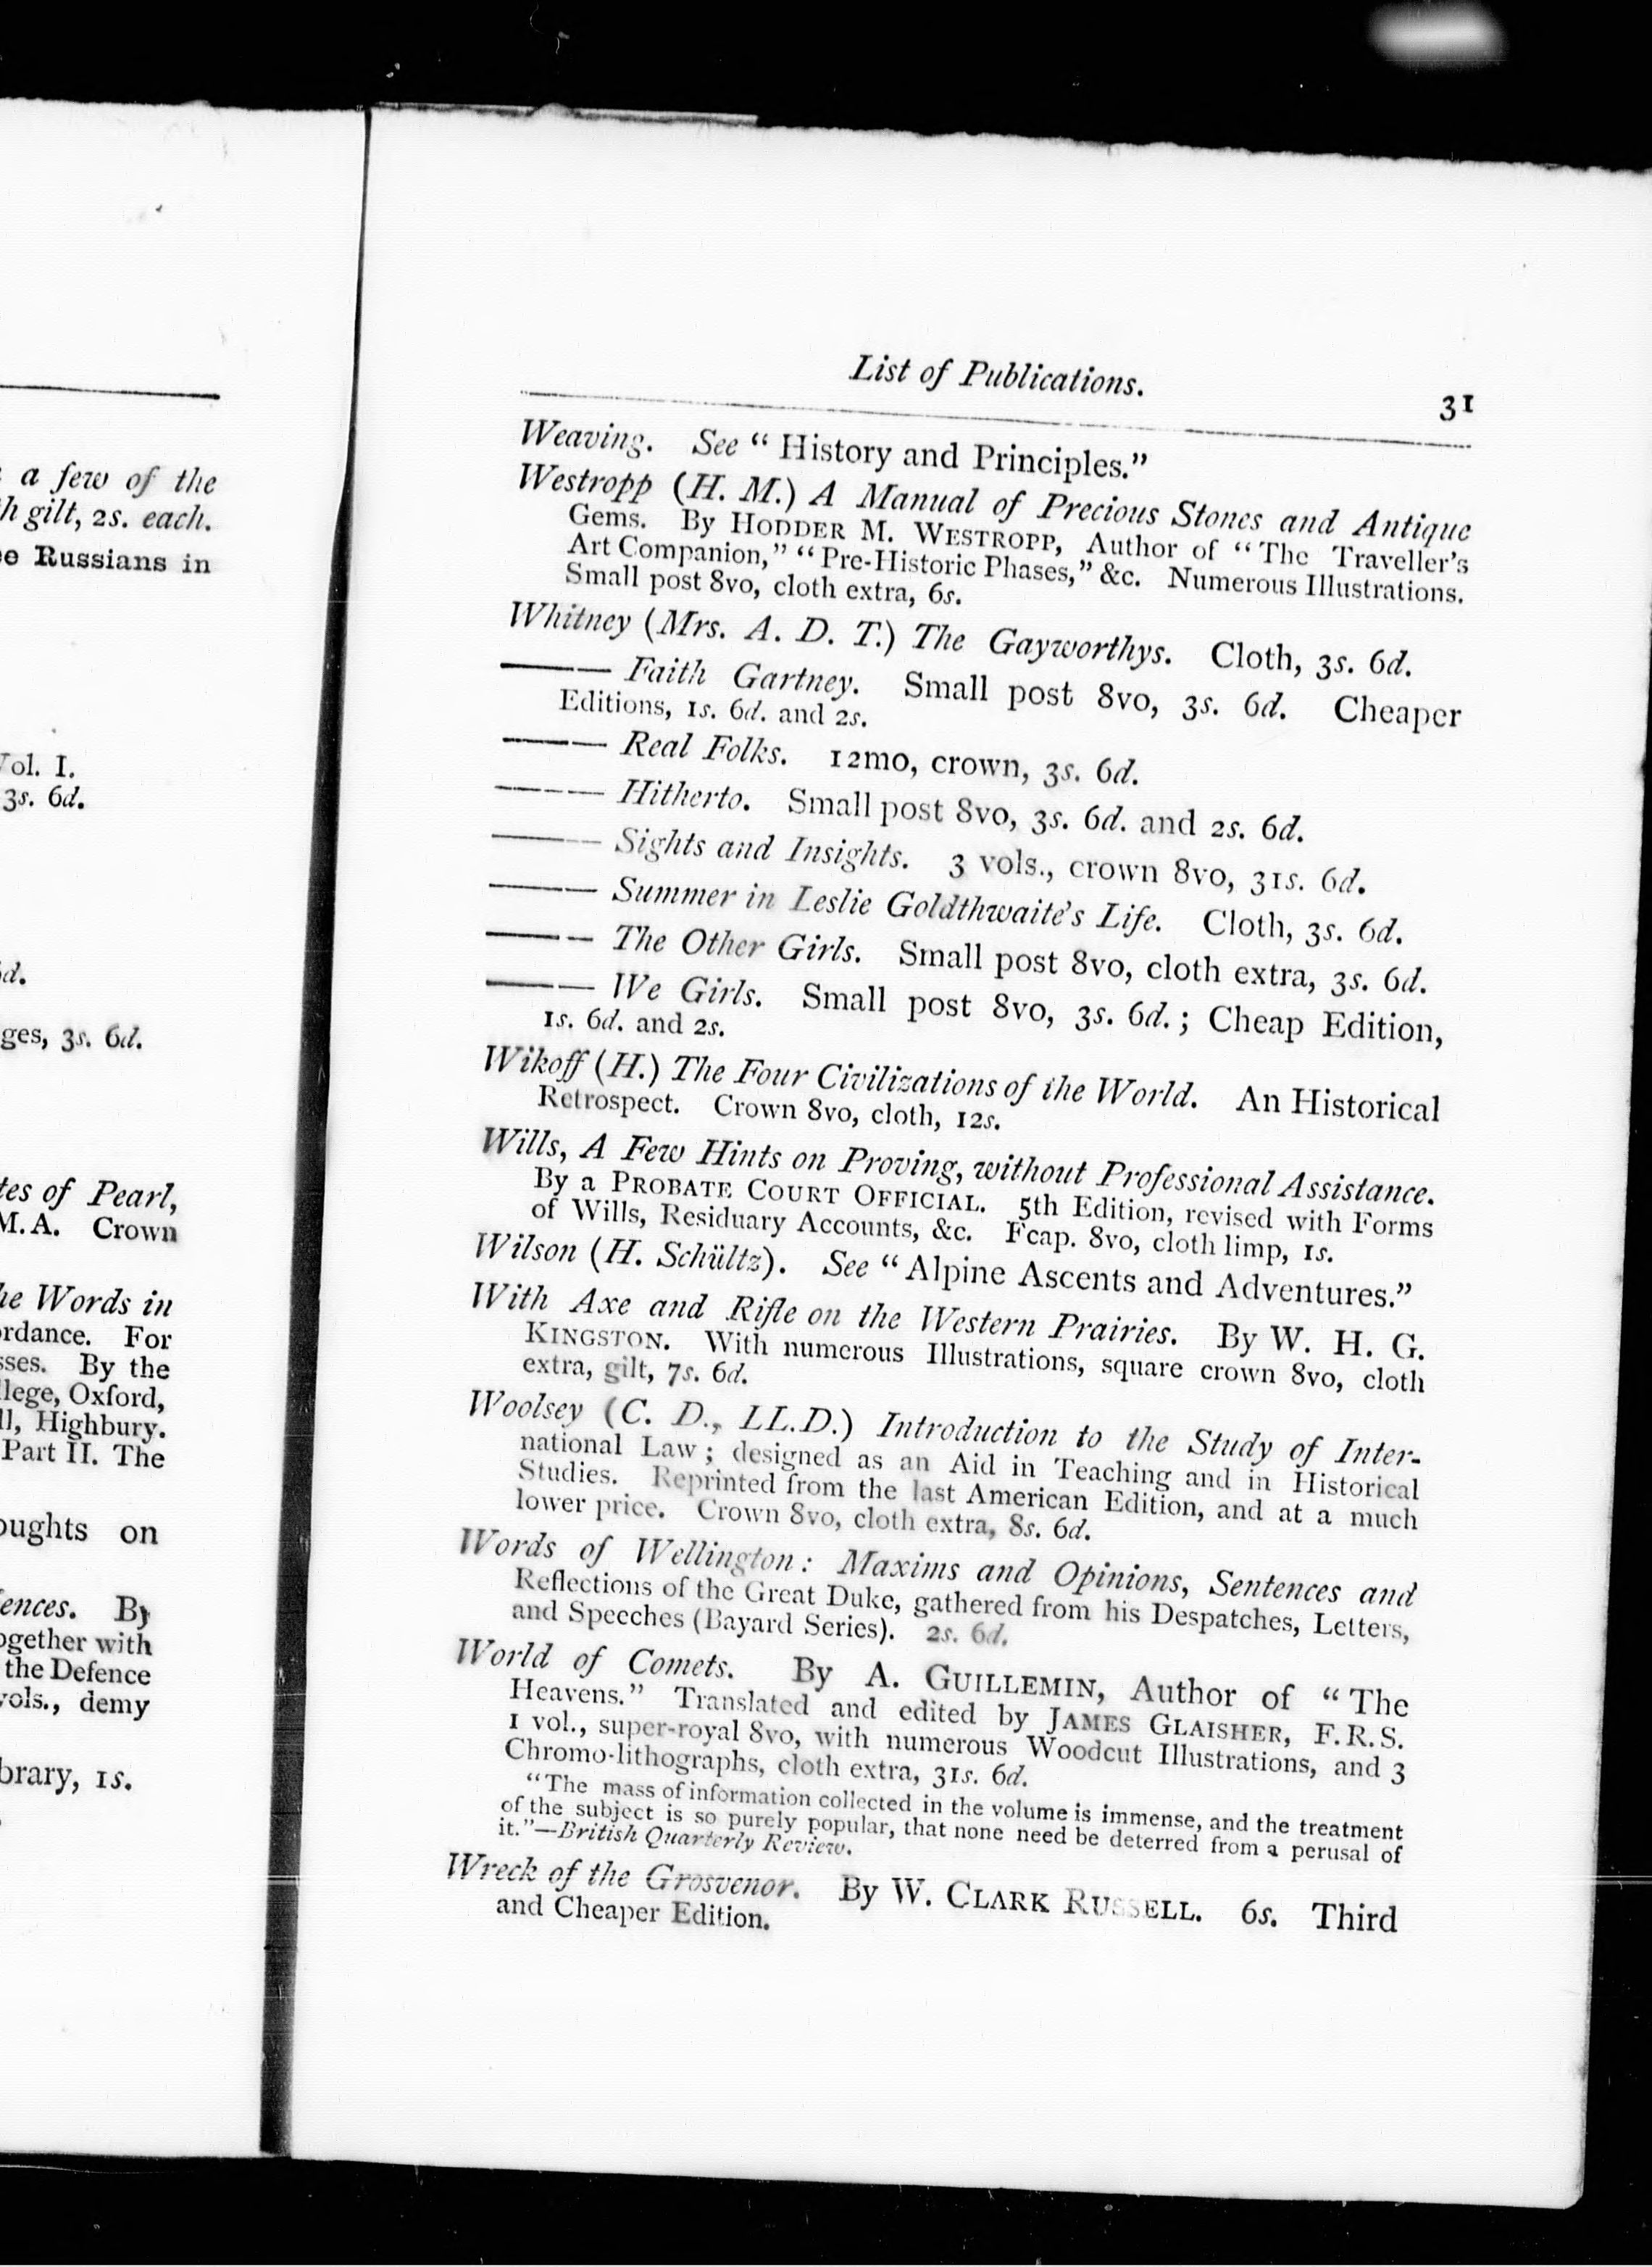 a few of the
h gilt, 2s. each.
Russians in
ol. I.
3s. 6d.
d.
ges, 3s. 6d.
tes of Pearl,
M.A. Crown
he Words in
rdance. For
sses. By the
llege, Oxford,
ll, Highbury.
Part II. The
oughts on
ences. By
ogether with
the Defence
vols., demy
brary, 1s.
List of Publications. 31
Weaving. See "History and Principles."
Westropp (H. M.) A Manual of Precious Stones and Antique
Gems. By HODDER M. WESTROPP, Author of "The Traveller's
Art Companion," "Pre-Historic Phases," &c. Numerous Illustrations.
Small post 8vo, cloth extra, 6s.
Whitney (Mrs. A. D. T.) The Gayworthys. Cloth, 3s. 6d.
——— Faith Gartney. Small post 8vo, 3s. 6d. Cheaper
Editions, 1s. 6d. and 2s.
——— Real Folks. 12mo, crown, 3s. 6d.
——— Hitherto. Small post 8vo, 3s. 6d. and 2s. 6d.
——— Sights and Insights. 3 vols., crown 8vo, 31s. 6d.
——— Summer in Leslie Goldthwaite's Life. Cloth, 3s. 6d.
——— The Other Girls. Small post 8vo, cloth extra, 3s. 6d.
——— We Girls. Small post 8vo, 3s. 6d.; Cheap Edition,
1s. 6d. and 2s.
Wikoff (H.) The Four Civilizations of the World. An Historical
Retrospect. Crown 8vo, cloth, 12s.
Wills, A Few Hints on Proving, without Professional Assistance.
By a PROBATE COURT OFFICIAL. 5th Edition, revised with Forms
of Wills, Residuary Accounts, &c. Fcap. 8vo, cloth limp, 1s.
Wilson (H. Schültz). See "Alpine Ascents and Adventures."
With Axe and Rifle on the Western Prairies. By W. H. G.
KINGSTON. With numerous Illustrations, square crown 8vo, cloth
extra, gilt, 7s. 6d.
Woolsey (C. D., LL.D.) Introduction to the Study of Inter-
national Law; designed as an Aid in Teaching and in Historical
Studies. Reprinted from the last American Edition, and at a much
lower price. Crown 8vo, cloth extra, 8s. 6d.
Words of Wellington: Maxims and Opinions, Sentences and
Reflections of the Great Duke, gathered from his Despatches, Letters,
and Speeches (Bayard Series). 2s. 6d.
World of Comets. By A. GUILLEMIN, Author of "The
Heavens." Translated and edited by JAMES GLAISHER, F.R.S.
1 vol., super-royal 8vo, with numerous Woodcut Illustrations, and 3
Chromo-lithographs, cloth extra, 31s. 6d.
"The mass of information collected in the volume is immense, and the treatment
of the subject is so purely popular, that none need be deterred from a perusal of
it."—British Quarterly Review.
Wreck of the Grosvenor. By W. CLARK RUSSELL. 6s. Third
and Cheaper Edition.